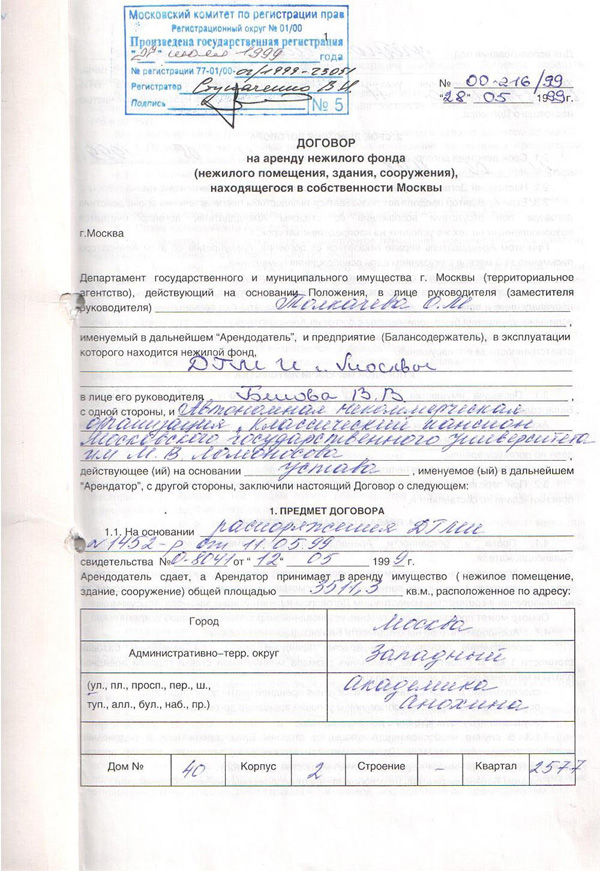 Московский комитет по регистрации прав
Регистрационный округ № 01/00
1
Произведена государственная регистрация
"28" июля 1999 года
№ регистрации 77-01/00-02/1999-23051
Регистратор
Подпись № 5
№ 00-216/99
"28" 05 1999г.
ДОГОВОР
на аренду нежилого фонда
(нежилого помещения, здания, сооружения),
находящегося в собственности Москвы
г.Москва
Департамент государственного и муниципального имущества г. Москвы (территориальное
агентство), действующий на основании Положения, в лице руководителя (заместителя
руководителя) Толкачева О.М.
,
именуемый в дальнейшем "Арендодатель", и предприятие (Балансодержатель), в эксплуатации
которого находится нежилой фонд,
ДГМИ г. Москвы
в лице его руководителя Белова В.В ,
с одной стороны, и Автономная некоммерческая
организация "Классический пансион
Московского государственного университета
им М.В. Ломоносова ,
действующее (ий) на основании Устава , именуемое (ый) в дальнейшем
"Арендатор", с другой стороны, заключили настоящий Договор о следующем:
1. ПРЕДМЕТ ДОГОВОРА
1.1. На основании распоряжения ДГМИ
№1452-р от 11.05.99
свидетельства №0-8041 от "12" 05 1999 г.
Арендодатель сдает, а Арендатор принимает в аренду имущество ( нежилое помещение,
здание, сооружение) общей площадью 3511,3 кв.м., расположенное по адресу:
Город Москва
Административно–терр. округ Западный
(ул., пл., просп., пер., ш., Академика
туп., алл., бул., наб., пр.) Анохина
Дом № 40 Корпус 2 Строение - Квартал 2577